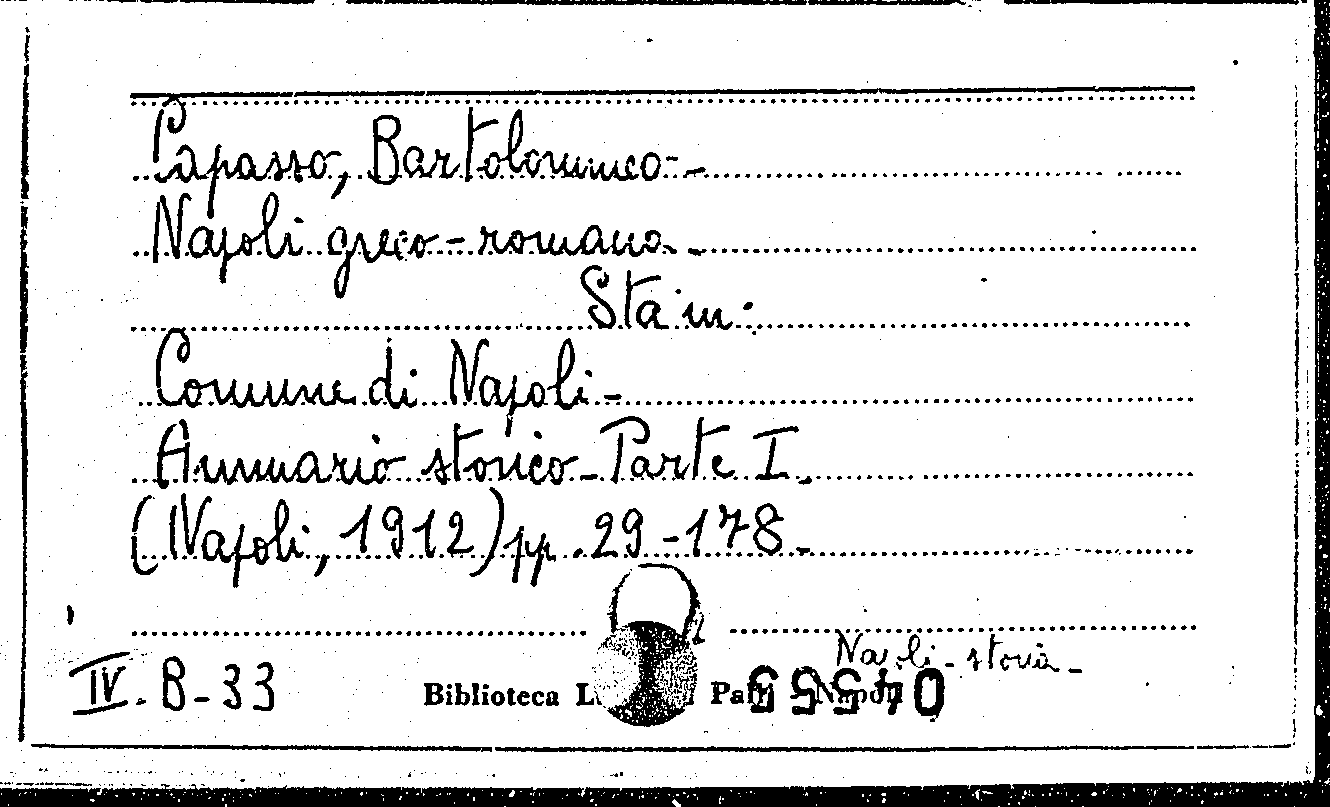 Capasso, Bartolommeo.-
Napoli greco-romana.-
Sta in:
Comune di Napoli-
Annuario storico-Parte I.
(Napoli, 1912) pp. 29-178.-
Napoli-storia-
IV. B-33
Biblioteca